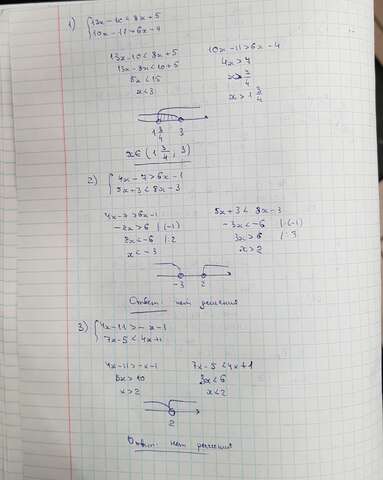 1) { 13x-10<8x+5
10x-11>6x-4
13x-10<8x+5 10x-11>6x-4
13x-8x<10+5 4x>7
5x<15 x>7/4
x<3 x>1 3/4
1 3/4 3
x∈(1 3/4, 3)
2) { 4x-7>6x-1
5x+3<8x-3
4x-7>6x-1 5x+3<8x-3
-2x>6 |·(-1) -3x<-6 |·(-1)
2x<-6 |:2 3x>6 |:3
x<-3 x>2
-3 2
Ответ: нет решения
3) { 4x-11>-x-1
7x-5<4x+1
4x-11>-x-1 7x-5<4x+1
5x>10 3x<6
x>2 x<2
2
Ответ: нет решения